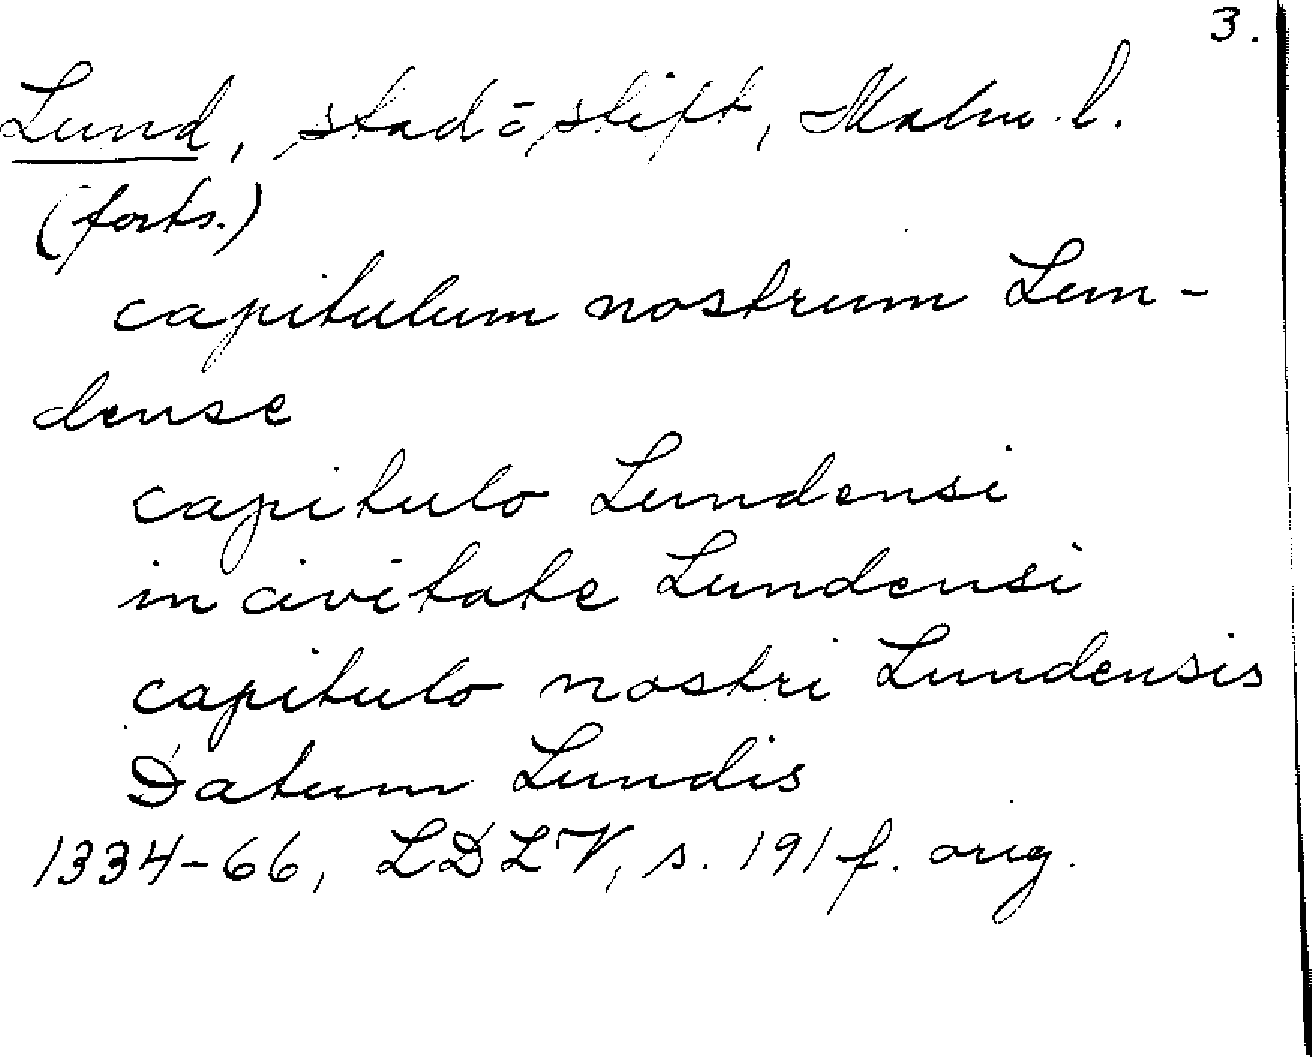 3.
Lund, stad o stift, Malm. l.
(forts.)
capitulum nostrum Lun-
dense
capitulo Lundensi
in civitate Lundensi
capitulo nostri Lundensis
Datum Lundis
1334-66, LDLV, s. 191 f. orig.